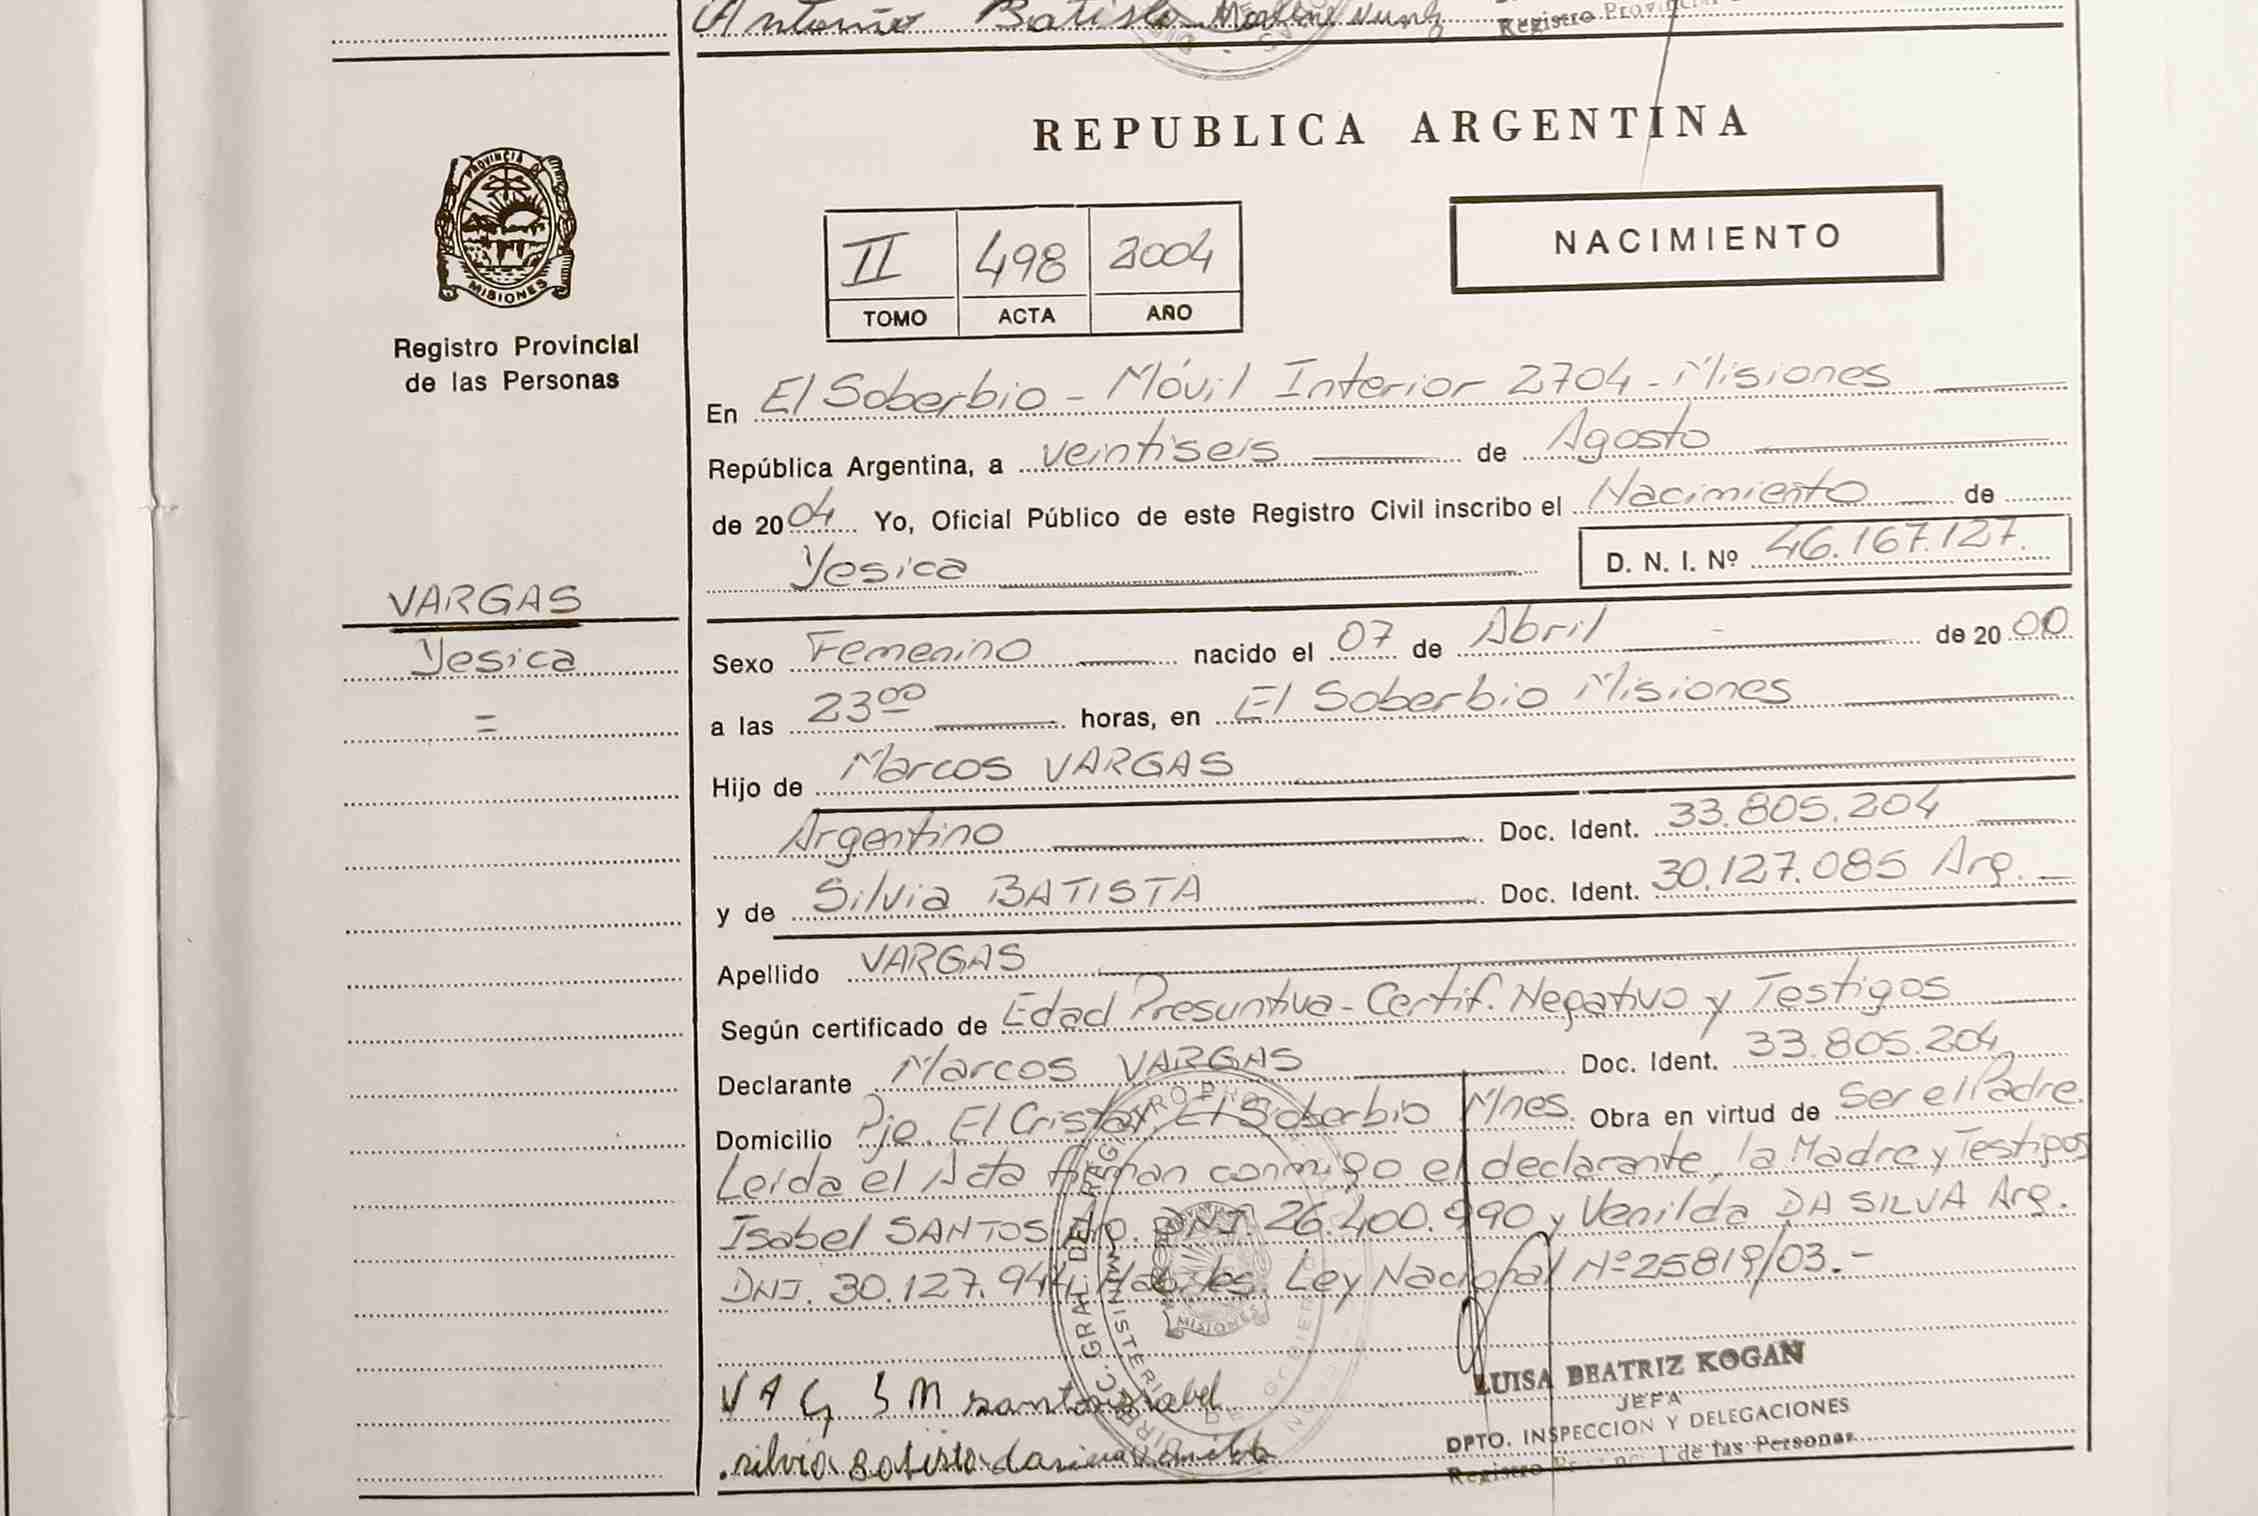 Antonio Batista
Registro Provincial
REPUBLICA ARGENTINA
PROVINCIA DE
MISIONES
Registro Provincial
de las Personas
II 498 2004
TOMO ACTA AÑO
NACIMIENTO
En El Soberbio - Móvil Interior 2704 - Misiones
República Argentina, a veintiseis de Agosto
de 2004 Yo, Oficial Público de este Registro Civil inscribo el Nacimiento de
Yesica D. N. I. Nº 46.167.127.
VARGAS
Yesica
=
Sexo Femenino nacido el 07 de Abril de 2000
a las 23⁰⁰ horas, en El Soberbio Misiones
Hijo de Marcos VARGAS
Argentino Doc. Ident. 33.805.204
y de Silvia BATISTA Doc. Ident. 30.127.085 Arg.
Apellido VARGAS
Según certificado de Edad Presuntiva - Certif. Negativo y Testigos
Declarante Marcos VARGAS Doc. Ident. 33.805.204
Domicilio Pje. El Cristal, El Soberbio Mnes. Obra en virtud de Ser el Padre.
Leída el Acta firman conmigo el declarante, la Madre y Testigos
Isabel SANTOS Arg. DNI. 26.400.990 y Venilda DA SILVA Arg.
DNI. 30.127.944. Hábiles. Ley Nacional Nº 25819/03.-
V A G S M santos isabel
silvia Batista
LUISA BEATRIZ KOGAN
JEFA
DPTO. INSPECCION Y DELEGACIONES
Registro Provincial de las Personas